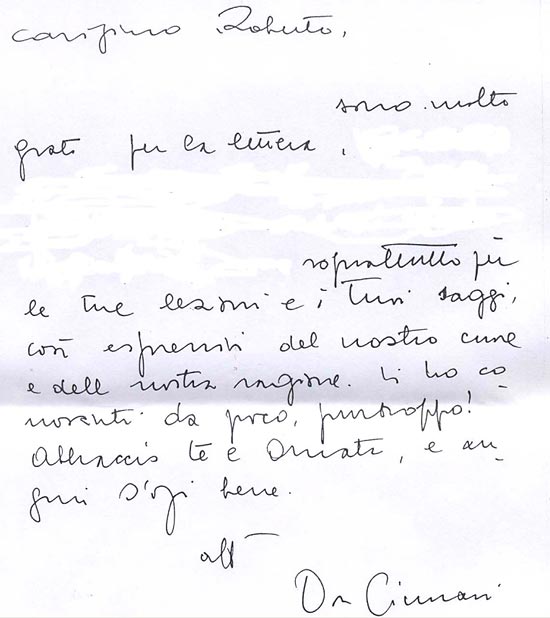 carissimo Roberto,
sono molto
grato per la lettera,
soprattutto per
le tue lezioni e i tuoi saggi,
così espressivi del nostro cuore
e della nostra ragione. Li ho co-
nosciuti da poco, purtroppo!
Abbraccio te e, e au-
guri d'ogni bene.